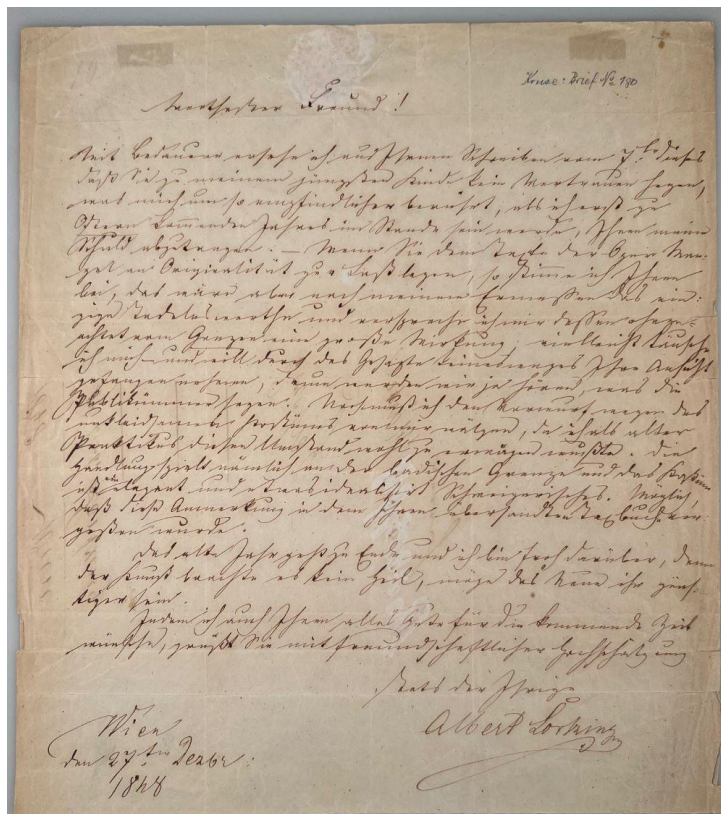 Kruse: Brief No 180
Werthester Freund!
Mit Bedauern ersehe ich aus Ihrem Schreiben vom 7ten dieses
daß Sie zu meinem jüngsten Kinde kein Vertrauen hegen,
was mich um so empfindlicher berührt, als ich erst zu
Ostern kommenden Jahres im Stande sein werde, Ihnen meine
Schuld abzutragen. — Wenn Sie dem Texte der Oper Man-
gel an Originalität zur Last legen, so stimme ich Ihnen
bei, das wäre aber nach meinem Ermessen das ein-
zige Tadelnswerthe und verspreche ich mir dessen ohnge-
achtet vom Ganzen eine große Wirkung; vielleicht täusche
ich mich und will durch das Gesagte keineswegs Ihre Ansicht
gefangen nehmen, denn werden wir ja hören, was die
Publikümmer sagen. Noch muß ich den Vorwurf wegen des
unkleidsamen Kostüms von mir wälzen, da ich als alter
Praktikus diesen Umstand wohl zu erwägen wußte. Die
Handlung spielt nämlich an der badischen Grenze und das Kostüm
ist elegant und etwas idealisirt Schweizerisches. Möglich,
daß diese Anmerkung in dem Ihnen übersandten Textbuche ver-
geßen wurde.
Das alte Jahr geht zu Ende und ich bin froh darüber, denn
der Kunst brachte es kein Heil, möge das Neue ihr güns-
tiger sein.
Indem ich auch Ihnen alles Gute für die kommende Zeit
wünsche, grüßt Sie mit freundschaftlicher Hochschätzung
stets der Ihrige
Albert Lortzing
Wien
den 27ten Dezbr:
1848